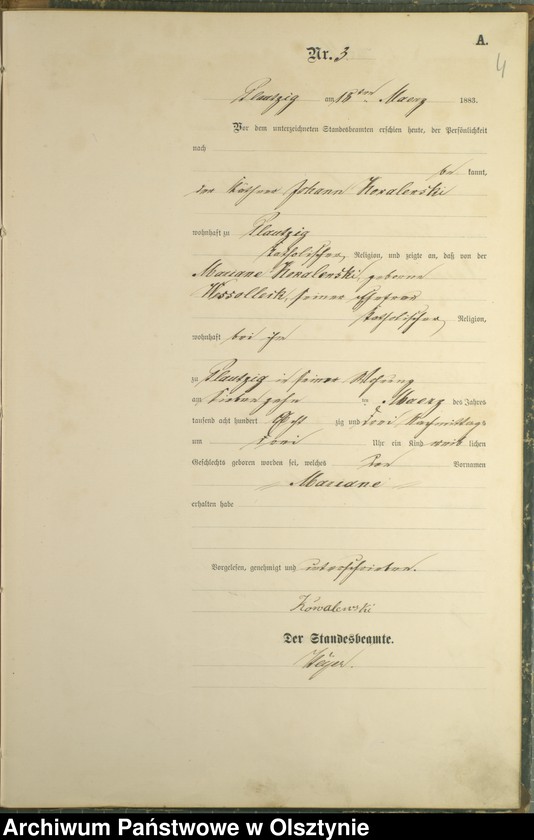 A.
4
Nr. 3
Plautzig am 18ten Maerz 1883.
Vor dem unterzeichneten Standesbeamten erschien heute, der Persönlichkeit
nach
be kannt,
der Käthner Johann Kowalewski
wohnhaft zu Plautzig
katholischer Religion, und zeigte an, daß von der
Mariane Kowalewski, geborne
seiner Ehefrau
katholischer Religion,
wohnhaft bei ihm
zu Plautzig in seiner Wohnung
am siebenzehn ten Maerz des Jahres
tausend acht hundert Acht zig und drei Nachmittags
um drei Uhr ein Kind weib lichen
Geschlechts geboren worden sei, welches den Vornamen
Mariane
erhalten habe
Vorgelesen, genehmigt und unterschrieben.
Kowalewski
Der Standesbeamte.
Archiwum Państwowe w Olsztynie